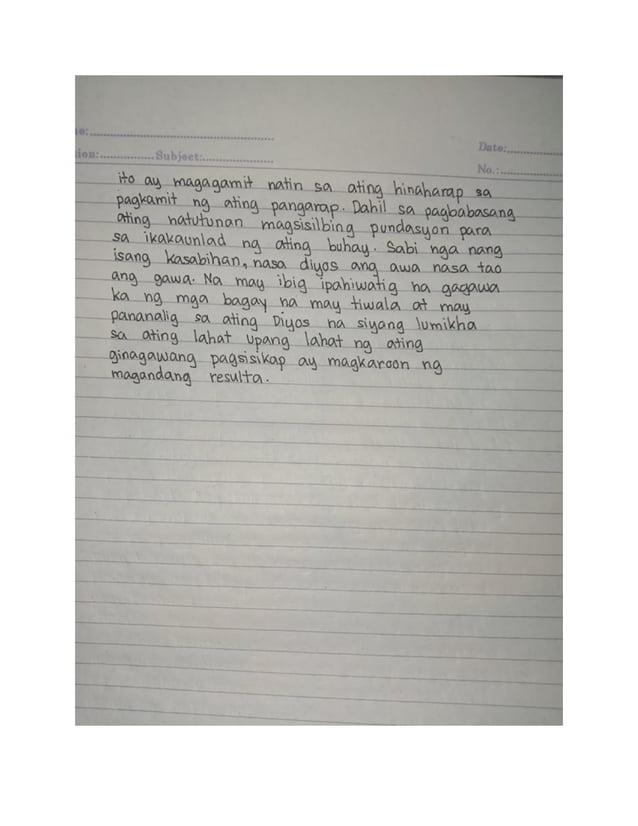 me:
tion: Subject:
Date:
No.:
ito ay magagamit natin sa ating hinaharap sa
pagkamit ng ating pangarap. Dahil sa pagbabasang
ating natutunan magsisilbing pundasyon para
sa ikakaunlad ng ating buhay. Sabi nga nang
isang kasabihan, nasa diyos ang awa nasa tao
ang gawa. Na may ibig ipahiwatig na gagawa
ka ng mga bagay na may tiwala at may
pananalig sa ating Diyos na siyang lumikha
sa ating lahat upang lahat ng ating
ginagawang pagsisikap ay magkaroon ng
magandang resulta.